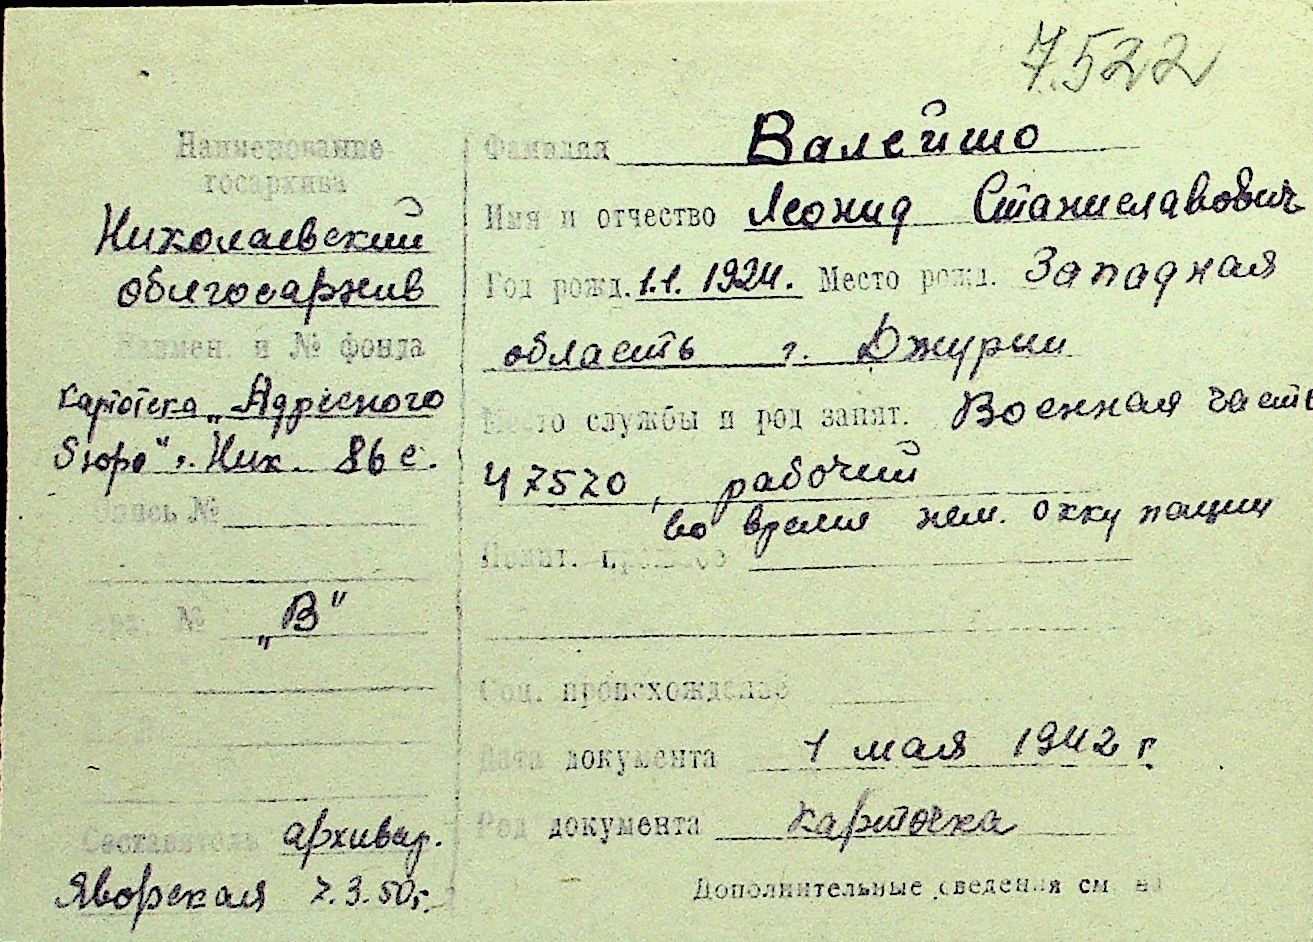 7.522
Наименование
госархива
Николаевский
облгосархив
Наимен. и № фонда
Картотека „Адресного
бюро" г. Ник. 86 с.
Опись №
№ „В"
Составитель архивар.
Яворская 7.3.50 г.
Фамилия Валейшо
Имя и отчество Леонид Станиславович
Год рожд. 1.1. 1924. Место рожд. Западная
область г. Джурыи
Место службы и род занят. Военная часть
47570, рабочий
во время нем. оккупации
Полит.
Соц. происхождение
Дата документа 1 мая 1942 г.
Род документа карточка
Дополнительные сведения см на